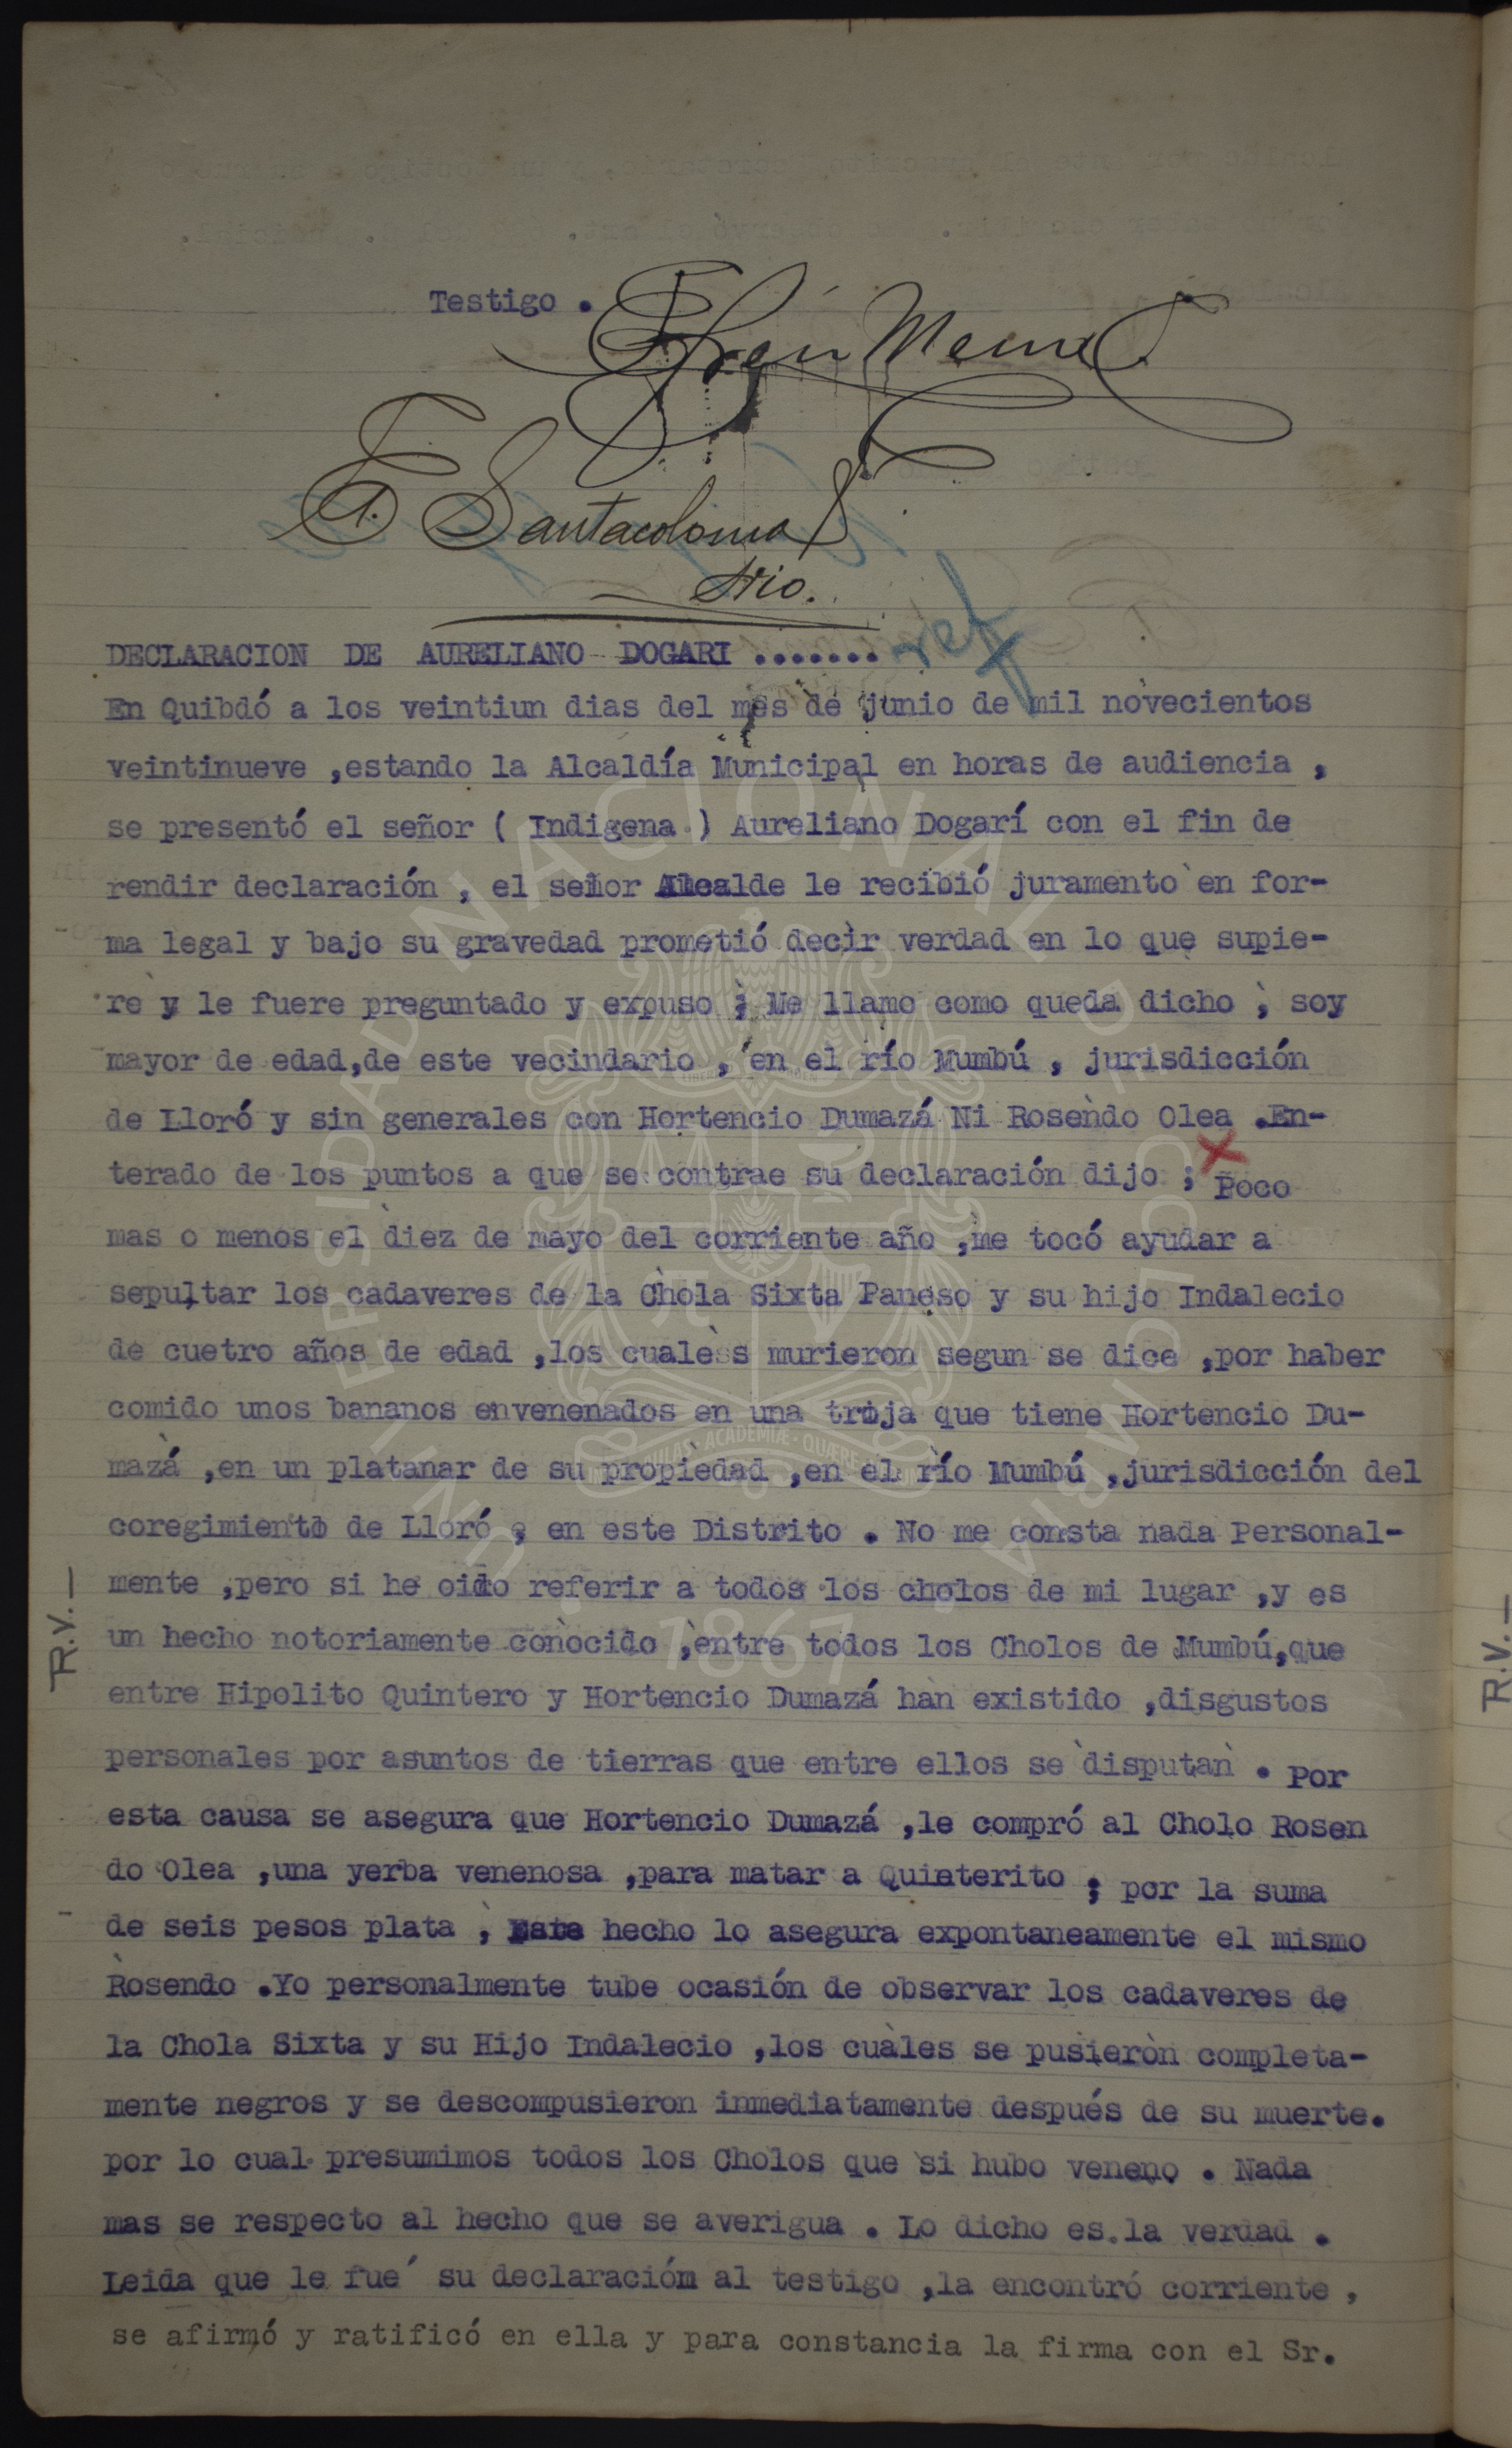 Testigo .
Efrén Mena
F. Santacoloma
Srio.
ref
DECLARACION DE AURELIANO DOGARI .......
En Quibdó a los veintiun dias del mes de junio de mil novecientos
veintinueve ,estando la Alcaldía Municipal en horas de audiencia ,
se presentó el señor ( Indigena ) Aureliano Dogarí con el fin de
rendir declaración , el señor Alcalde le recibió juramento en for-
ma legal y bajo su gravedad prometió decir verdad en lo que supie-
re y le fuere preguntado y expuso ; Me llamo como queda dicho , soy
mayor de edad,de este vecindario , en el río Mumbú , jurisdicción
de Lloró y sin generales con Hortencio Dumazá Ni Rosendo Olea .En-
terado de los puntos a que se contrae su declaración dijo ; Poco
mas o menos el diez de mayo del corriente año ,me tocó ayudar a
sepultar los cadaveres de la Chola Sixta Paneso y su hijo Indalecio
de cuetro años de edad ,los cualess murieron segun se dice ,por haber
comido unos bananos envenenados en una troja que tiene Hortencio Du-
mazá ,en un platanar de su propiedad ,en el río Mumbú ,jurisdicción del
coregimiento de Lloró , en este Distrito . No me consta nada Personal-
mente ,pero si he oido referir a todos los cholos de mi lugar ,y es
un hecho notoriamente conocido ,entre todos los Cholos de Mumbú,que
entre Hipolito Quintero y Hortencio Dumazá han existido ,disgustos
personales por asuntos de tierras que entre ellos se disputan . Por
esta causa se asegura que Hortencio Dumazá ,le compró al Cholo Rosen
do Olea ,una yerba venenosa ,para matar a Quinterito ; por la suma
de seis pesos plata , Este hecho lo asegura expontaneamente el mismo
Rosendo .Yo personalmente tube ocasión de observar los cadaveres de
la Chola Sixta y su Hijo Indalecio ,los cuales se pusieron completa-
mente negros y se descompusieron inmediatamente después de su muerte.
por lo cual presumimos todos los Cholos que si hubo veneno . Nada
mas se respecto al hecho que se averigua . Lo dicho es la verdad .
Leida que le fue su declaración al testigo ,la encontró corriente ,
se afirmó y ratificó en ella y para constancia la firma con el Sr.
R.V.—
R.V.—
UNIVERSIDAD NACIONAL DE COLOMBIA
1867